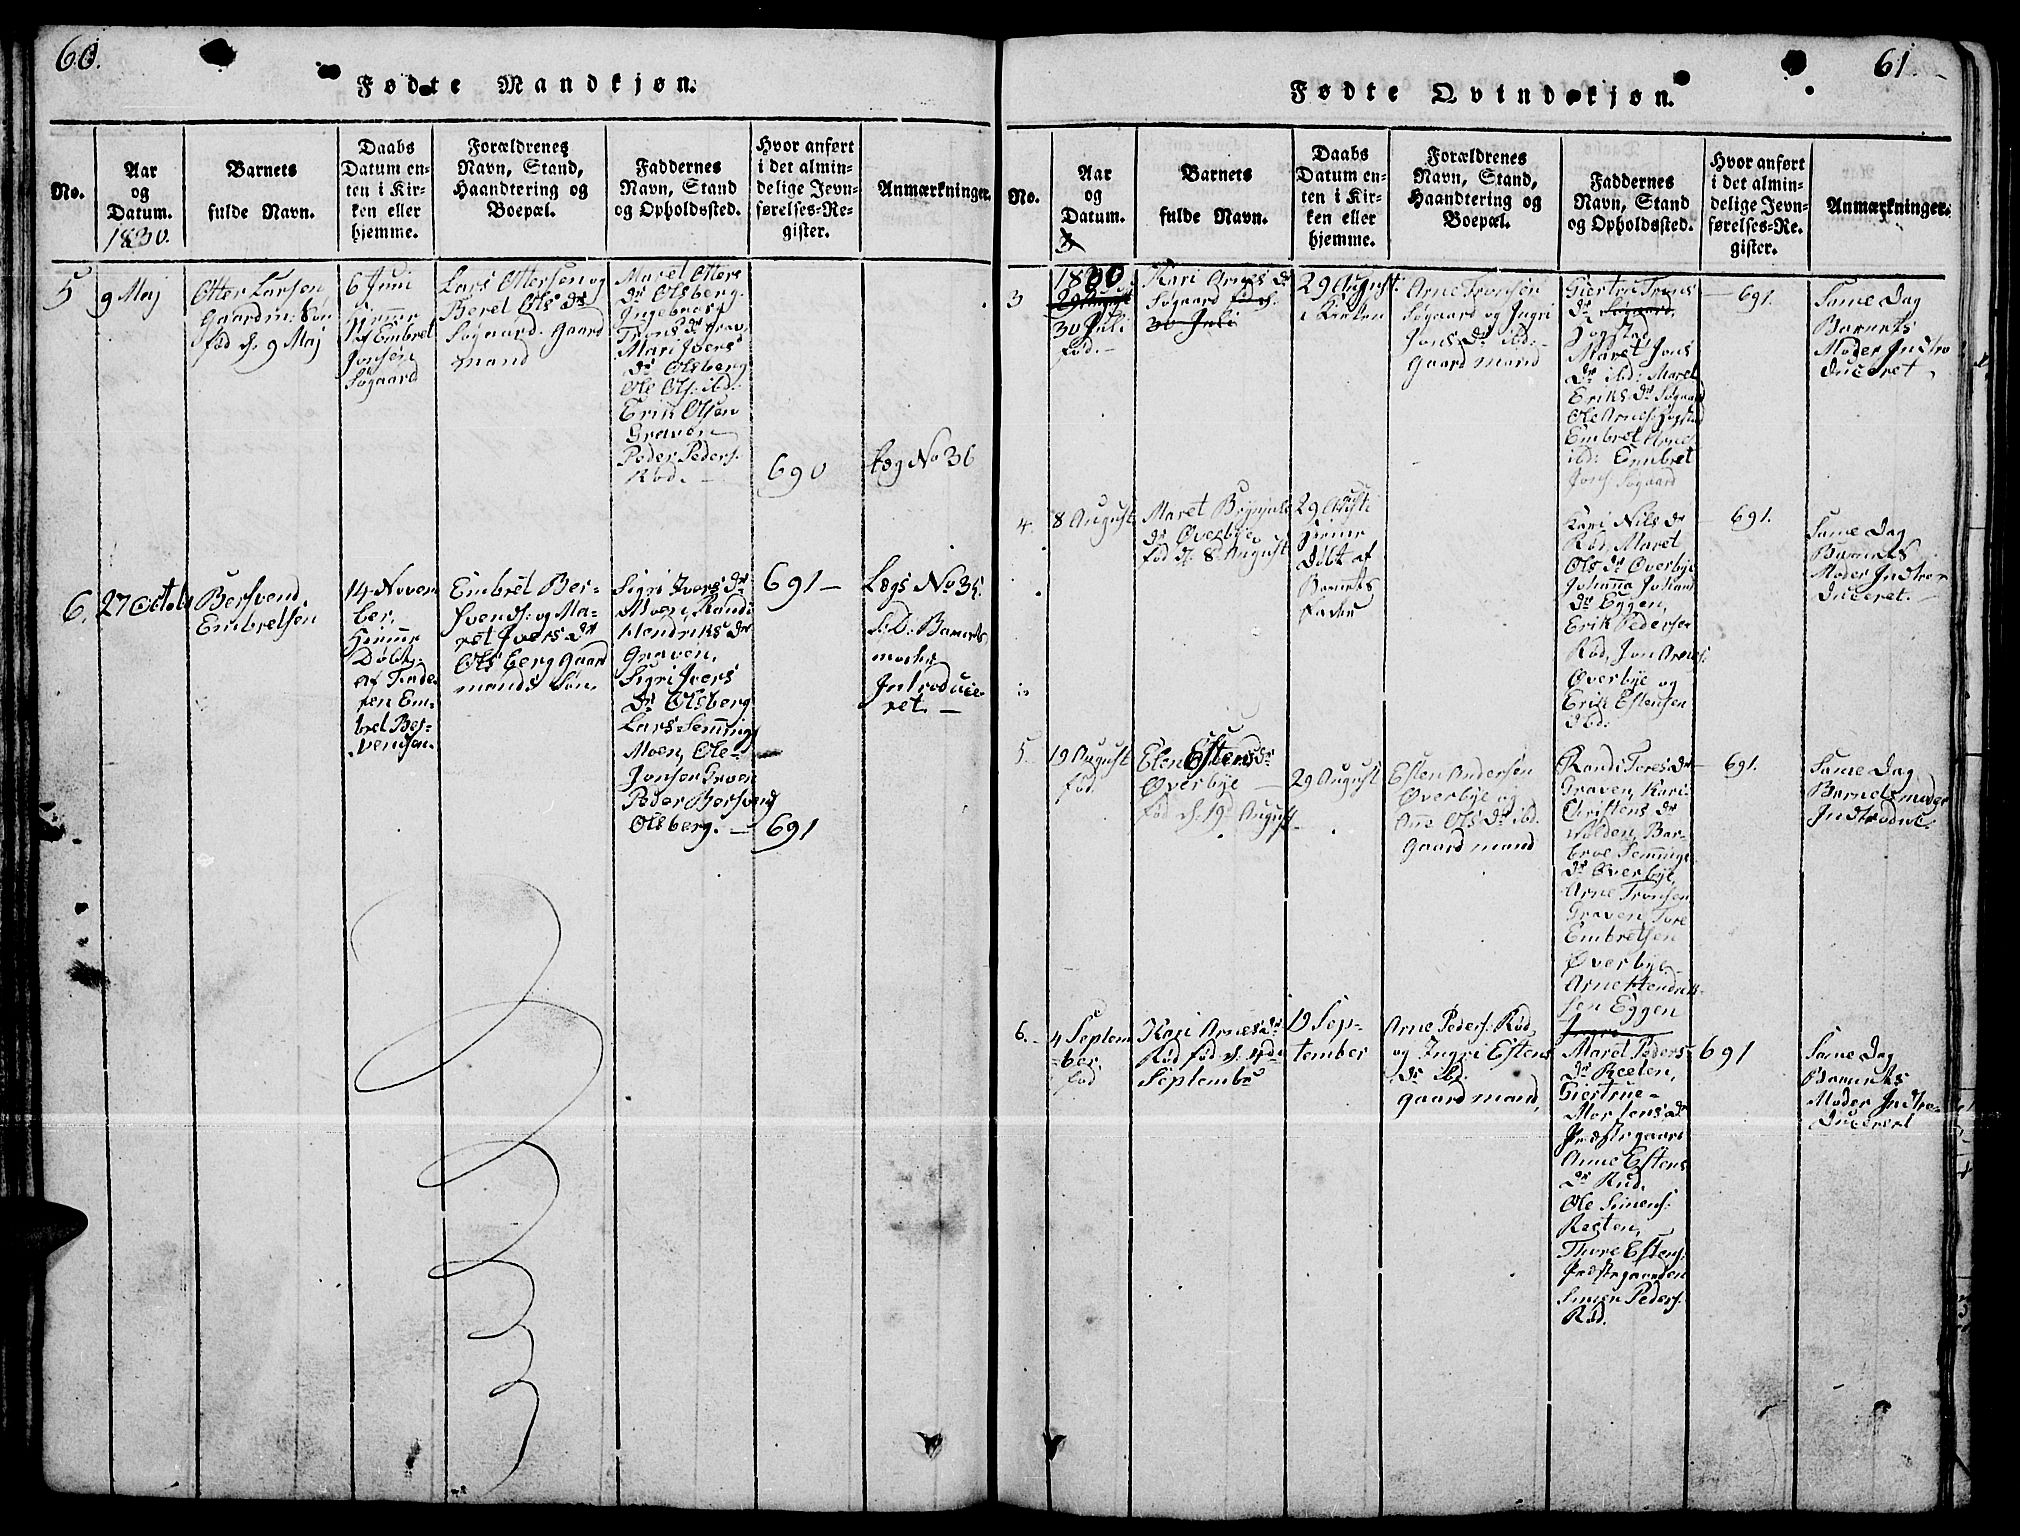 60.
Fødte Mandkjøn.
No.
Aar
og
Datum.
1830.
Barnets
fulde Navn.
Daabs
Datum en-
ten i Kir-
ken eller
hjemme.
Forældrenes
Navn, Stand,
Haandtering og
Boepæl.
Faddernes
Navn, Stand
og Opholdssted.
Hvor anført
i det almin-
delige Jevn-
førelses-Re-
gister.
Anmærkninger.
5
9 Maj
Otter Larsen
Gaardm: Søn
fød d. 9 Maj
6 Juni
Hjemme
af Embret
Jonsen
Søgaard
Lars Ottersen og
Beret Ols dr
Søgaard. Gaard
mand
Maret Otters
dr Olsberg.
Ingeborg
Trons dr Grav.
Mari Ivers
dr Olsberg
Ole Ols: ibd:
Erik Olsen
Graven
Peder Peders.
Rød. –
690
Læg No 36
6.
27 Octob
Bersvend
Embretsen
14 Novem
ber.
Hjemme
Døbt
af Fade-
ren Em-
bret Ber-
svendsen.
Embret Ber-
svends: og Ma-
ret Ivers dr
Olsberg Gaard
mands Søn.
Sigri Ivers dr
Moen, Randi
Hendriks dr
Graven,
Sigri Ivers
dr Olsberg
Lars Semming
Moen, Ole
Jonsen Graven
Peder Bersvend
Olsberg. –
691 –
691
Lægs No 35.
S: D: Barnets
moder
Introduce
ret. –
61
Fødte Qvindekjøn.
No.
Aar
og
Datum.
Barnets
fulde Navn.
Daabs
Datum en-
ten i Kir-
ken eller
hjemme.
Forældrenes
Navn, Stand,
Haandtering og
Boepæl.
Faddernes
Navn, Stand
og Opholdssted.
Hvor anført
i det almin-
delige Jevn-
førelses-Re-
gister.
Anmærkninger.
3
1830
29 August
30 Juli
fød. –
Kari Arnes dr
Søgaard fød d.
30 Juli
29 August
i Kirken
Arne Tronsen
Søgaard og Ingri
Jons dr ibd.
Gaardmand
Giertru Trons
dr Søgaard,
Hogstad,
Maret Jons
dr ibd: Maret
Eriks dr Søgaard
Ole Arnes: Hogstad
Embret Arnes
ibd: Embret
Jons Søgaard
691.
Same Dag
Barnets
Moder Indtro
duceret.
4.
8 August
Maret
dr Øverbye
fød d. 8 August
29 August
Hjemme
Døbt af
Barnets
Fader
Kari Nils dr
Rød, Maret
Ols dr Øverbye
Johanna Johann
dr Eggen,
Erik Pedersen
Rød, Jon Arnes:
Øverbye og
Erik Estensen
ibd:
691.
Same Dag
Barnets
Moder Indtro
duceret. –
5
19 August
fød.
Elen Estens dr
Øverbye
fød d. 19 August
29 August
Esten Andersen
Øverbye og
Anne Ols dr ibd.
Gaardmand
Randi Tores dr
Graven, Kari
Christens dr
Volden, Bar-
broe Semmings
dr Øverbye,
Arne Tronsen
Graven, Tore
Embretsen
Øverbye
Arne Hendrik-
sen Eggen
691.
Same Dag
Barnets moder
Indtroduc:
6. –
4 Septem
ber.
fød
Kari Arnes dr
Rød fød d. 4de
September
19 Sep-
tember
Arne Peders: Rød
og Ingri Estens
dr ibd.
gaardmand,
Ingri
Maret Peders-
dr Reeten,
Giertrue
Mortens dr
Præstegaard
Anne Estens
dr Rud,
Ole Simens:
Reeten,
Thore Estens:
Præstegaarden
Simen Peders.
Rød.
691
Same Dag
Barnets
Moder Indtro-
duceret